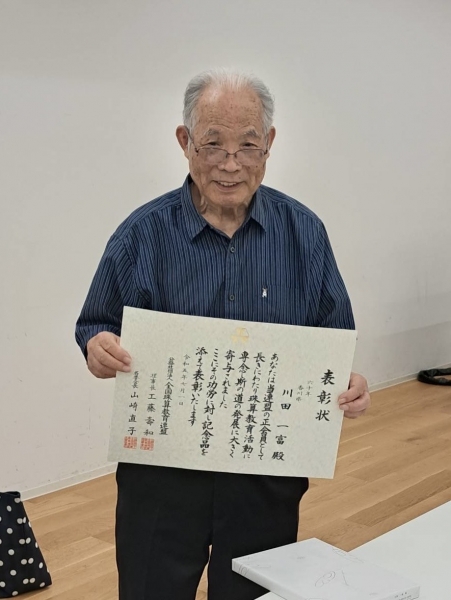 表彰状
六十年
香川県
川田一富殿
あなたは当連盟の正会員として
長きにわたり珠算教育活動に
専念し斯の道の発展に大きく
寄与されました
ここにその功労に対し記念品を
添えて表彰いたします
令和五年七月一日
公益社団法人全国珠算教育連盟
理事長工藤壽和
山﨑直子